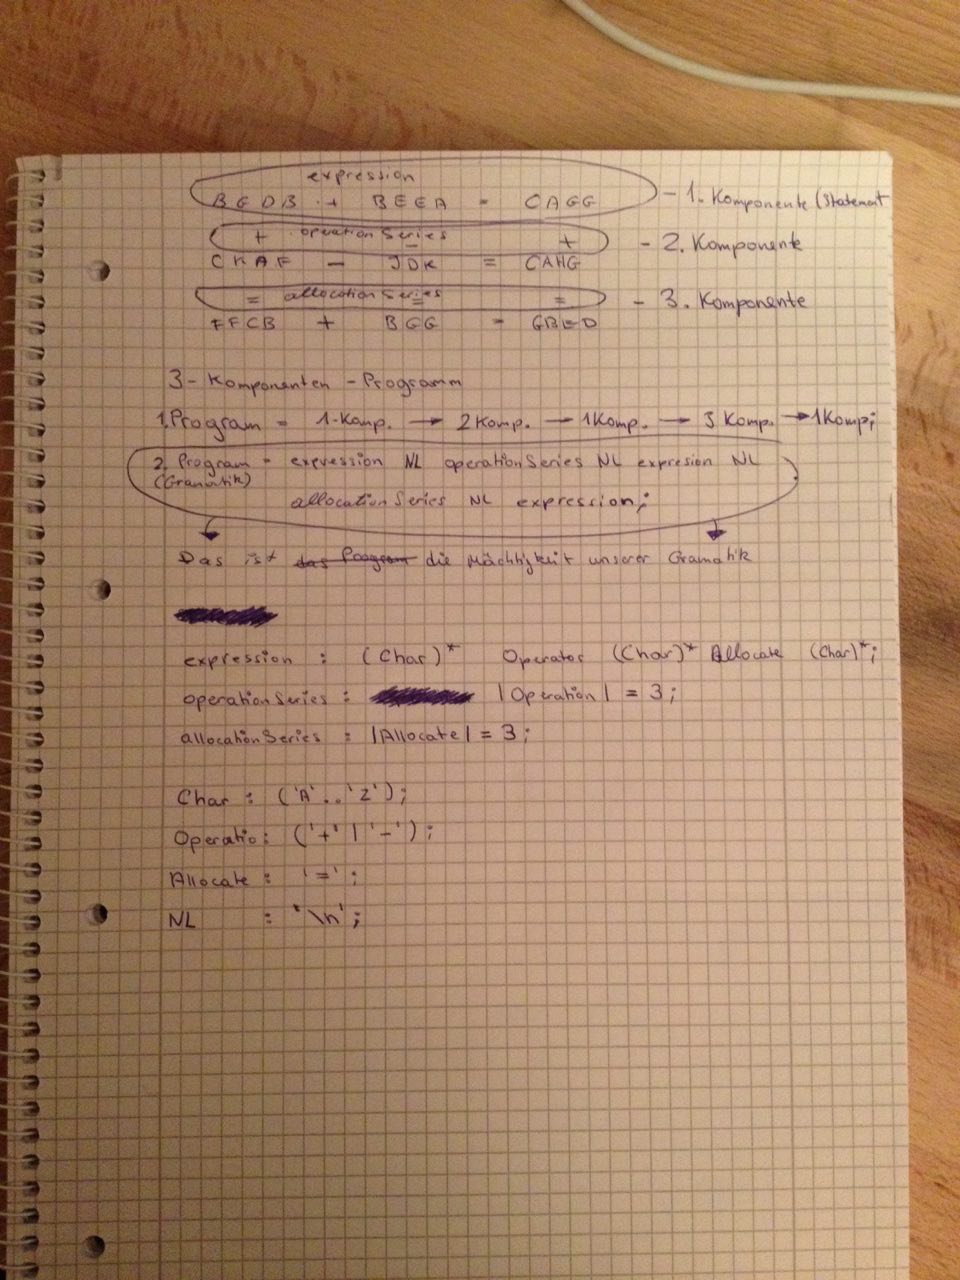 expression
BGDB + BEEA = CAGG - 1. Komponente (Statement
+ operationSeries - + - 2. Komponente
CKAF - JDK = CAHG
= allocationSeries = = - 3. Komponente
FFCB + BGG = GBED
3-Komponenten-Programm
1.Program = 1.Komp. → 2 Komp. → 1Komp. → 3 Komp. → 1Komp;
2. Program = expression NL operationSeries NL expresion NL
(Gramatik) allocationSeries NL expression;
Das ist das Program die Mächtigkeit unserer Gramatik
expression : (Char)* Operator (Char)* Allocate (Char)*;
operationSeries : |Operation| = 3;
allocationSeries : |Allocate| = 3;
Char : ('A'..'Z');
Operatio: ('+' | '-');
Allocate : '=';
NL : '\n';